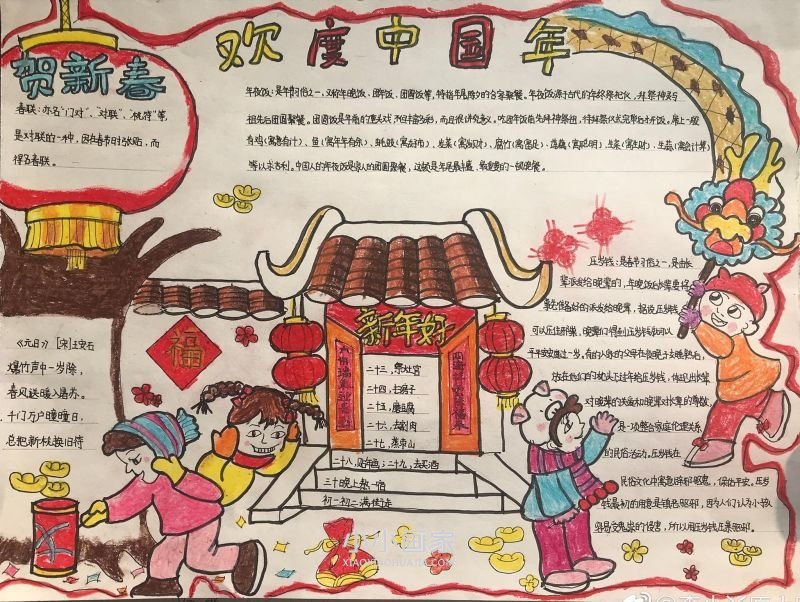 欢度中国年
贺新春
春联：亦名"门对"、"对联"、"桃符"等,
是对联的一种，因在春节时张贴，而
得名春联。
年夜饭：是年前习俗之一，又称年晚饭、团年饭、团圆饭等，特指年尾除夕的合家聚餐。年夜饭源于古代的年终祭祀仪，拜祭神灵与
祖先后团圆聚餐。团圆饭是年前的重头戏，不但丰富多彩，而且很讲究意义。吃团年饭前先拜神祭祖，待拜祭仪式完毕后才开饭。席上一般
有鸡（寓意有计）、鱼（寓年年有余）、
等以求吉利。中国人的年夜饭是家人的团圆聚餐，这顿是年尾最丰盛、最重要的一顿晚餐。
《元日》 [宋]王安石
爆竹声中一岁除，
春风送暖入屠苏。
千门万户曈曈日，
总把新桃换旧符
福
新年好
二十三，祭灶宫
二十四，扫房子
二十五，磨豆腐
二十六，去割肉
二十七，蒸枣山
二十八，贴年画；二十九，去买酒
三十晚上熬一宿
初一初二满街走
压岁钱：是春节习俗之一，是由长
辈派发给晚辈的，年晚饭后长辈要将
事先准备好的派发给晚辈，据说压岁钱
可以压住邪祟，晚辈们得到压岁钱就可以
平平安安度过一岁。有的人家的父母在夜晚子女睡熟后，
放在他们的枕头下过年给压岁钱，体现出长辈
对晚辈的关爱和晚辈对长辈的尊敬，
是一项整合家庭伦理关系
的民俗活动。压岁钱在
民俗文化中寓意辟邪驱鬼，保佑平安。压岁
钱最初的用意是镇恶驱邪，因为人们认为小孩
容易受鬼祟的侵害，所以用压岁钱压祟驱邪。
小小画家
XIAOXIAOHUAJIA.COM